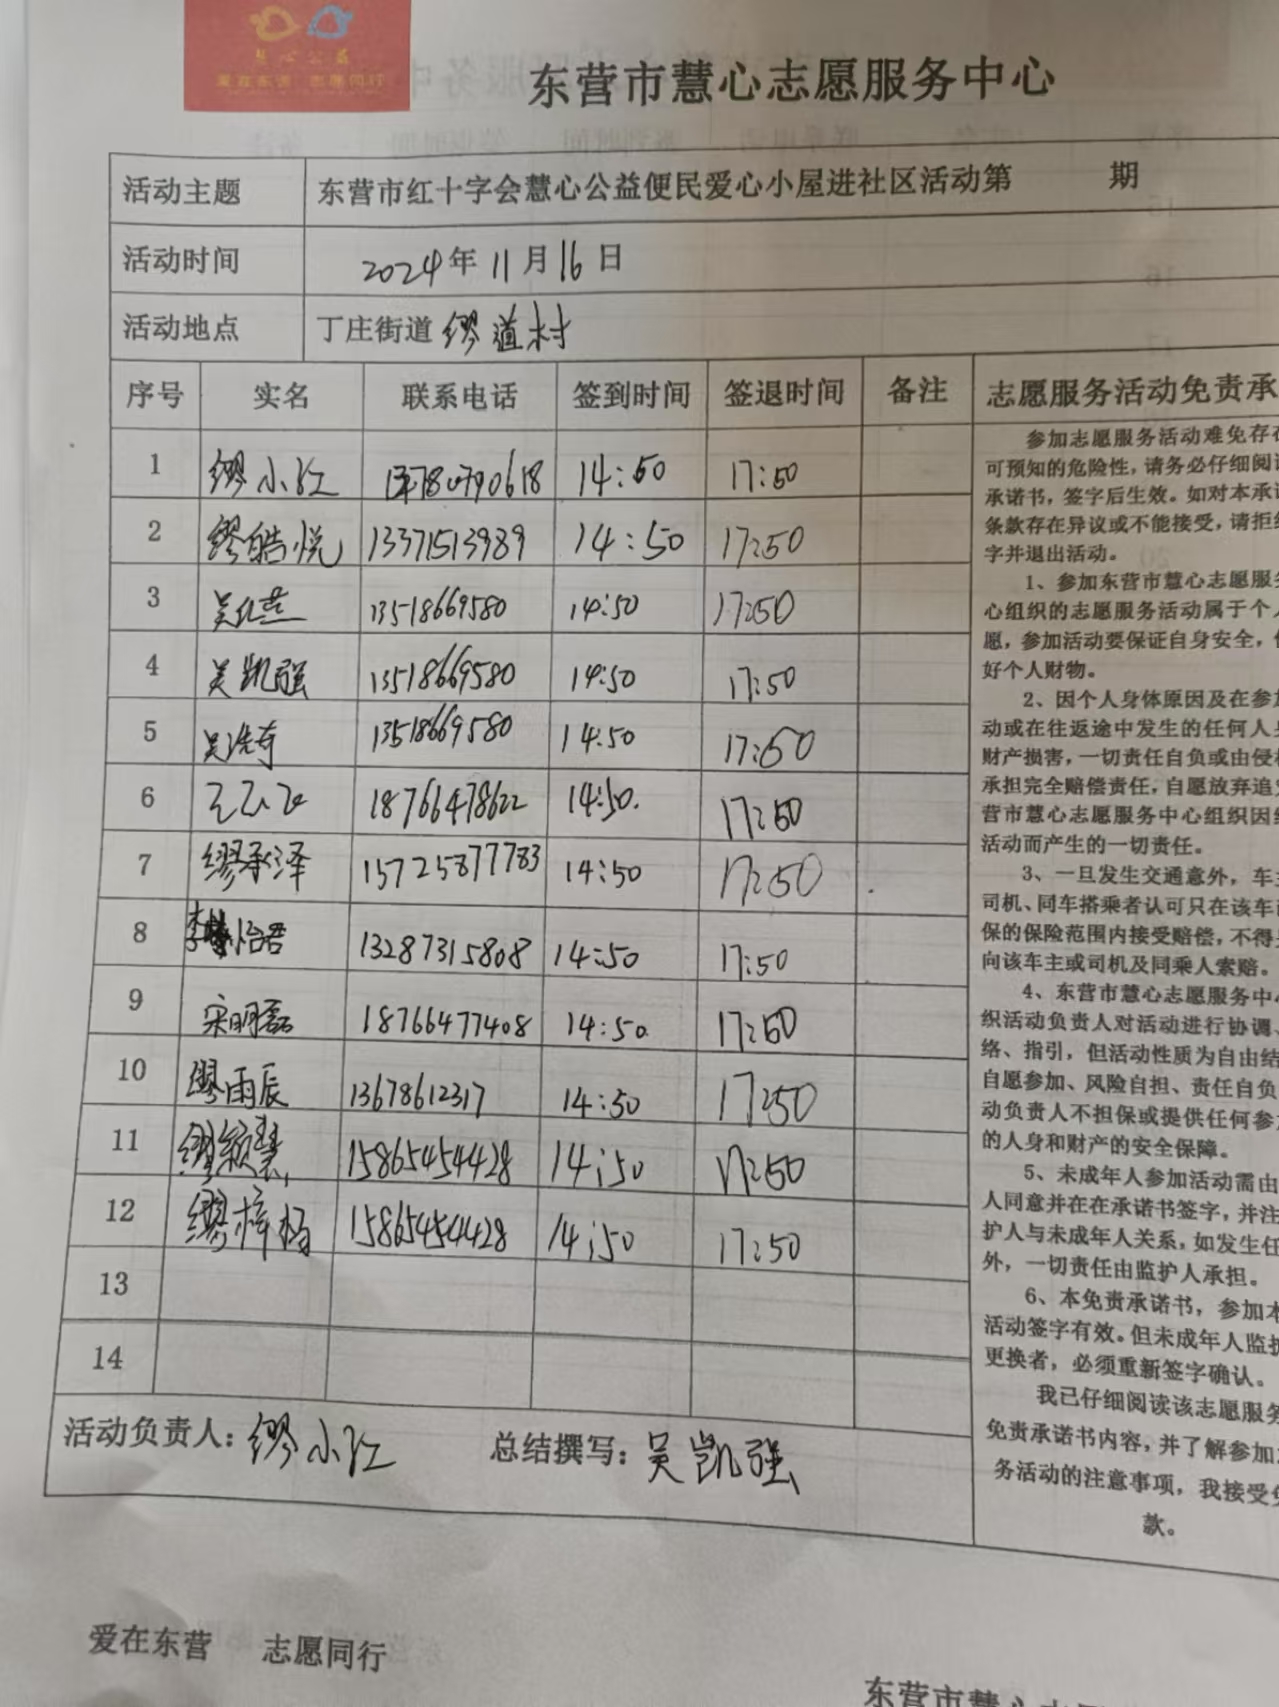 慧心公益
爱在东营 志愿同行
东营市慧心志愿服务中心
活动主题 东营市红十字会慧心公益便民爱心小屋进社区活动第 期
活动时间 2024年11月16日
活动地点 丁庄街道缪道村
序号 实名 联系电话 签到时间 签退时间 备注
1 缪小红 14:50 17:50
2 缪皓悦 13371513989 14:50 17:50
3 13518669580 14:50 17:50
4 吴凯强 13518669580 14:50 17:50
5 13518669580 14:50 17:50
6 18766478622 14:50. 17:50
7 缪承泽 15725877783 14:50 17:50
8 李怡君 13287315808 14:50 17:50
9 宋明磊 18766477408 14:50 17:50
10 缪雨辰 13678612317 14:50 17:50
11 缪颖慧 15865454428 14:50 17:50
12 缪梓杨 15865454428 14:50 17:50
13
14
活动负责人：缪小红 总结撰写：吴凯强
志愿服务活动免责承
参加志愿服务活动难免存在
可预知的危险性，请务必仔细阅读
承诺书，签字后生效。如对本承诺
条款存在异议或不能接受，请拒绝
字并退出活动。
1、参加东营市慧心志愿服务
心组织的志愿服务活动属于个人
愿，参加活动要保证自身安全，保
好个人财物。
2、因个人身体原因及在参加
动或在往返途中发生的任何人身
财产损害，一切责任自负或由侵权
承担完全赔偿责任，自愿放弃追究
营市慧心志愿服务中心组织因组
活动而产生的一切责任。
3、一旦发生交通意外，车主
司机、同车搭乘者认可只在该车
保的保险范围内接受赔偿，不得
向该车主或司机及同乘人索赔。
4、东营市慧心志愿服务中心
织活动负责人对活动进行协调、
络、指引，但活动性质为自由结
自愿参加、风险自担、责任自负
动负责人不担保或提供任何参加
的人身和财产的安全保障。
5、未成年人参加活动需由
人同意并在在承诺书签字，并注
护人与未成年人关系，如发生任
外，一切责任由监护人承担。
6、本免责承诺书，参加本
活动签字有效。但未成年人监护
更换者，必须重新签字确认。
我已仔细阅读该志愿服务
免责承诺书内容，并了解参加
务活动的注意事项，我接受免
款。
爱在东营 志愿同行
东营市慧心志愿服